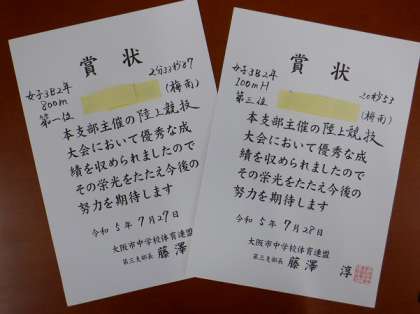 賞状
女子3B2年
800m
2分33秒87
第一位
(梅南)
本支部主催の陸上競技
大会において優秀な成
績を収められましたので
その栄光をたたえ今後の
努力を期待します
令和5年7月27日
大阪市中学校体育連盟
第三支部長 藤澤
賞状
女子3B2年
100mH
20秒53
第三位
(梅南)
本支部主催の陸上競技
大会において優秀な成
績を収められましたので
その栄光をたたえ今後の
努力を期待します
令和5年7月28日
大阪市中学校体育連盟
第三支部長 藤澤 淳